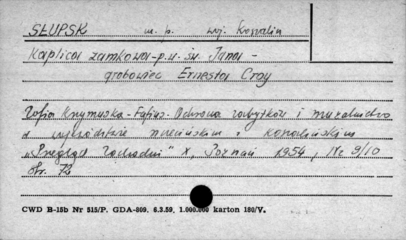 SŁUPSK m. p. woj. Koszalin
Kaplica zamkowa-p.w. św. Jana -
grobowiec Ernesta Croy
Zofia Krzymuska-Fafius-Ochrona zabytków i muzealnictwo
w województwie szczecińskim i koszalińskim
„Przegląd Zachodni" X, Poznań 1954, Nr 9/10
str. 72
CWD B-15b Nr 515/P. GDA-809. 6.3.59. 1.000.000 karton 180/V.